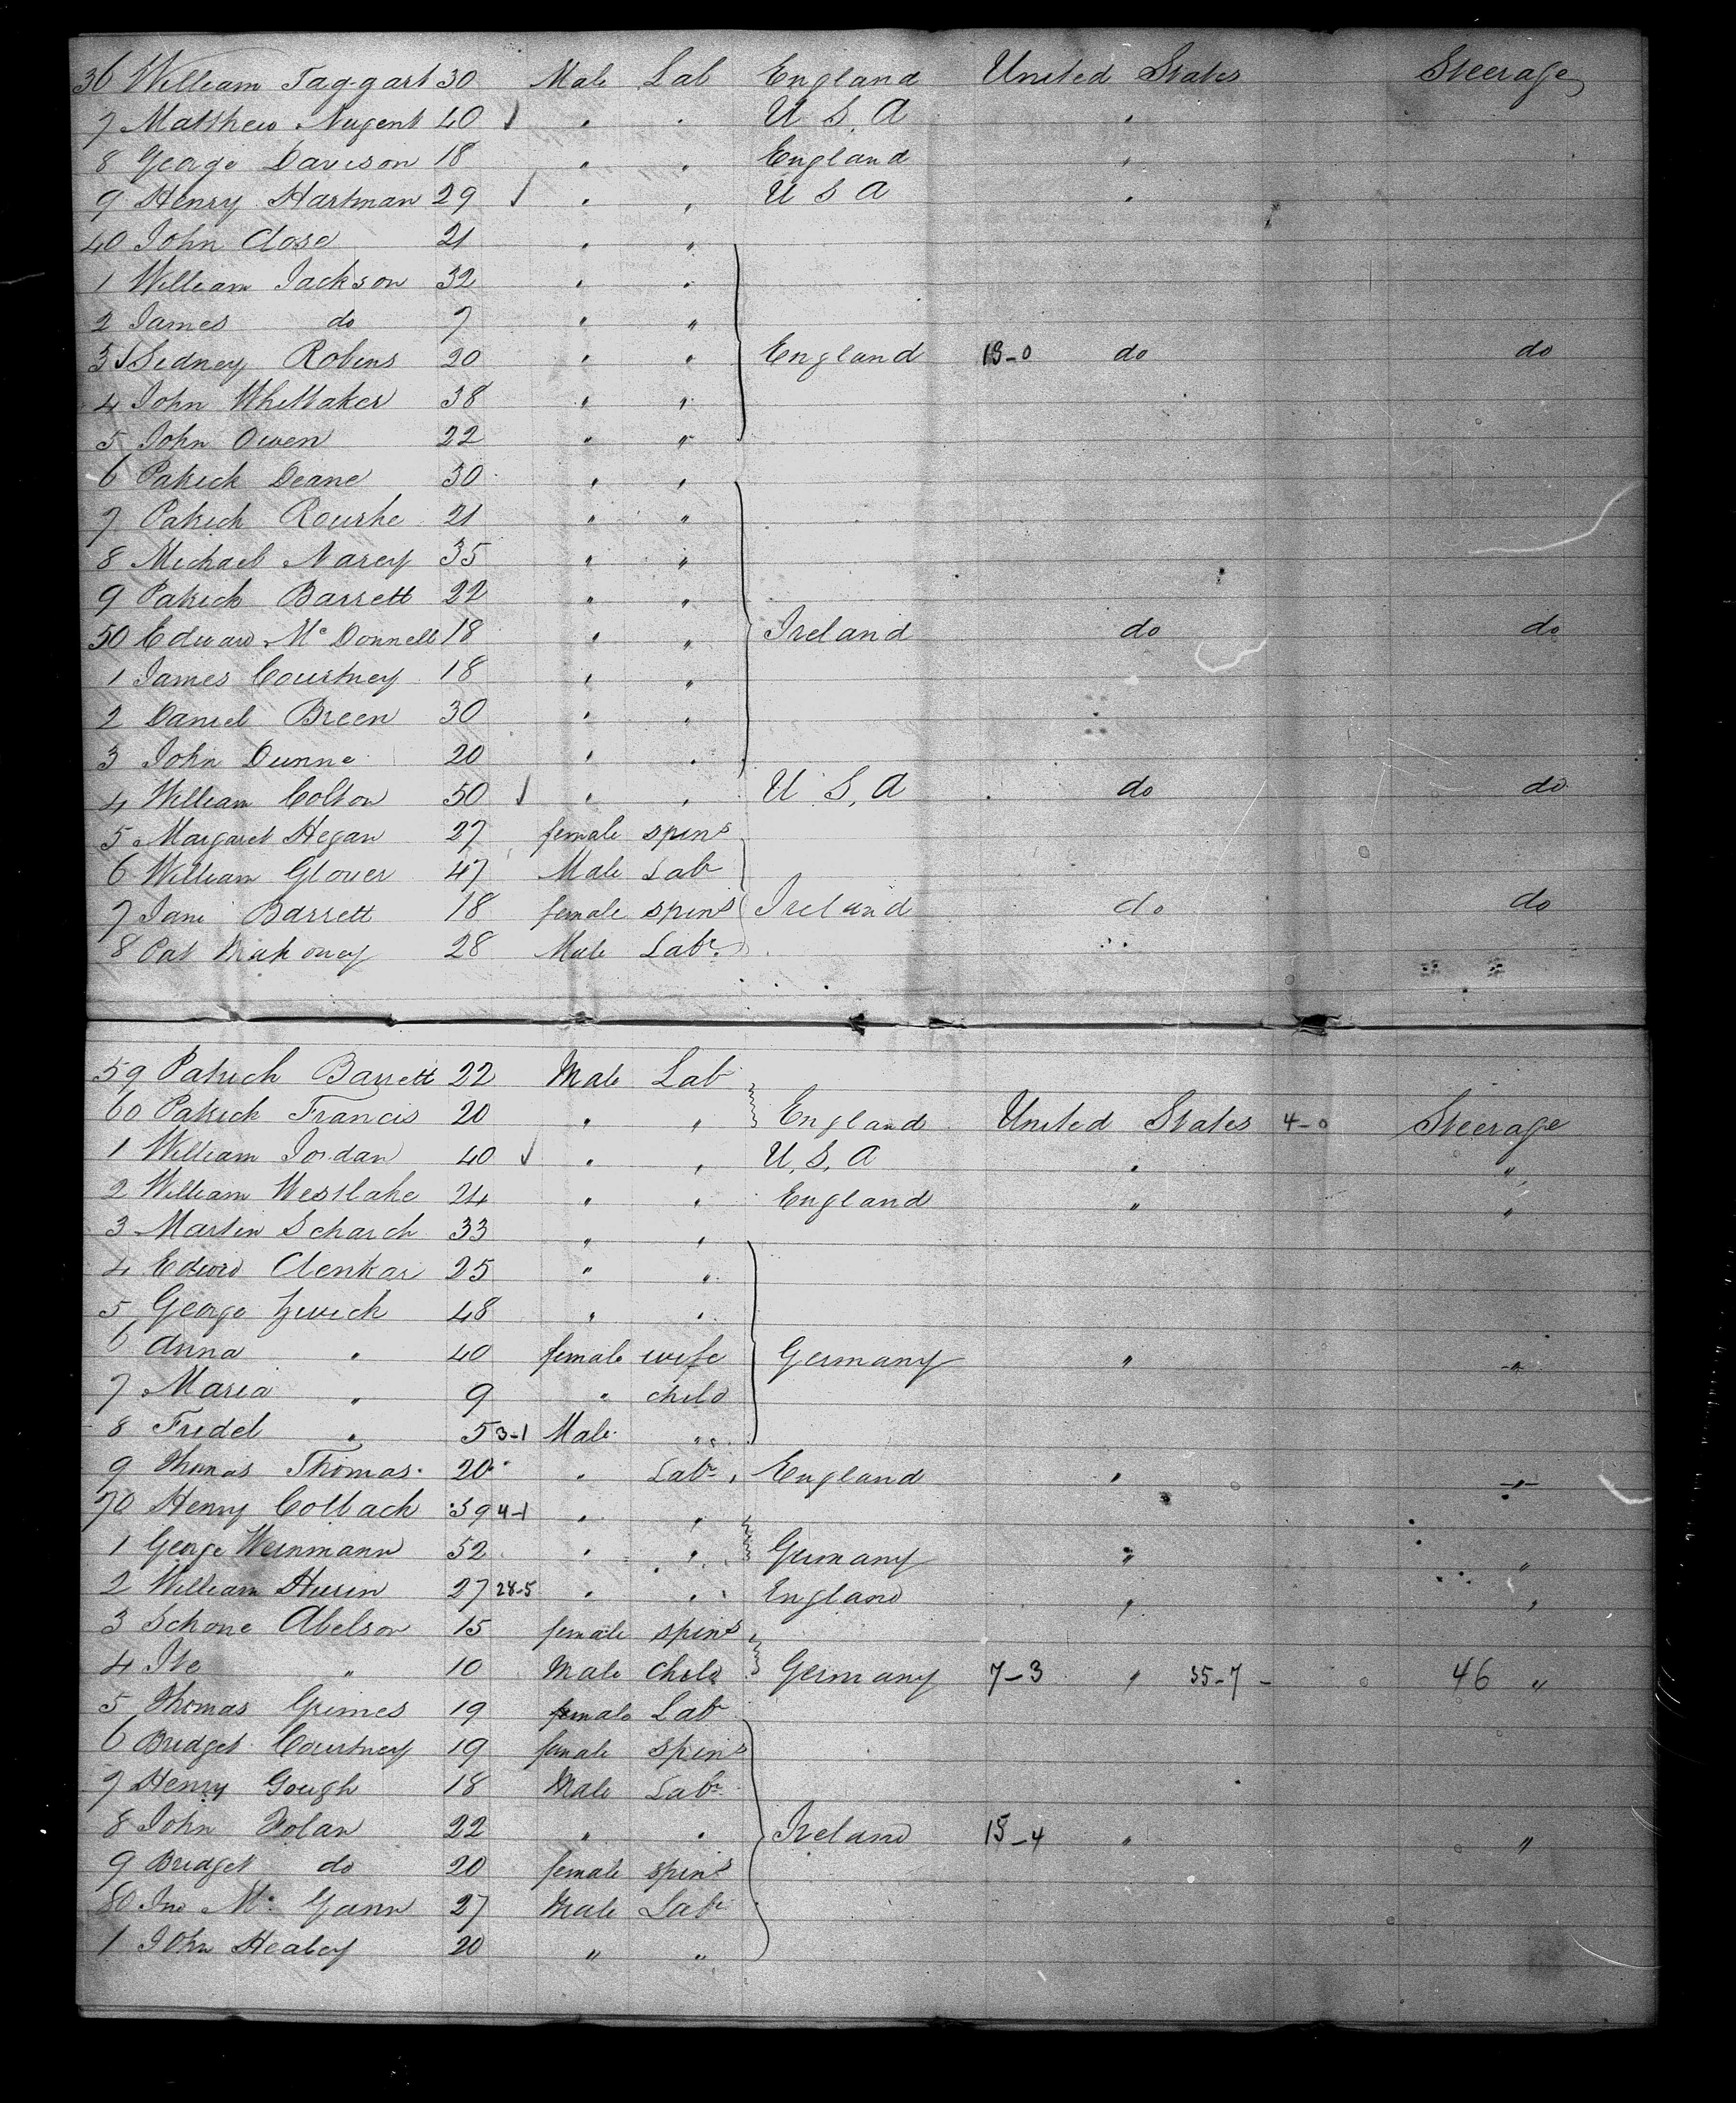 36 William Taggart 30 Male Lab England United States Steerage
7 Matthew Nugent 40 ✓ " " U S, A "
8 George Davison 18 " " England "
9 Henry Hartman 29 ✓ " " U S A "
40 John Close 21 " "
1 William Jackson 32 " "
2 James do 7 " "
3 ✓ Sidney Robins 20 " " England 13-0 do do
4 John Whittaker 38 " "
5 John Owen 22 " "
6 Patrick Deane 30 " "
7 Patrick Rourke 21 " "
8 Michael Narey 35 " "
9 Patrick Barrett 22 " "
50 Edward McDonnell 18 " " Ireland do do
1 James Courtney 18 " "
2 Daniel Breen 30 " "
3 John Dunne 20 " "
4 William Colton 50 ✓ " " U S, A do do
5 Margaret Hegan 27 female spins
6 William Glover 47 Male Lab
7 Jane Barrett 18 female spins Ireland do do
8 Pat Mahoney 28 Male Labr
59 Patrick Barrett 22 Male Lab
60 Patrick Francis 20 " " England United States 4-0 Steerage
1 William Jordan 40 ✓ " " U, S, A " "
2 William Westlake 24 " " England " "
3 Martin Scharch 33 " "
4 Edwrd Clenkar 25 " "
5 George Zwick 48 " "
6 Anna " 40 female wife Germany " "
7 Maria " 9 " child
8 Fridel " 5 3-1 Male "
9 Thomas Thomas 20 " Labr England " "
70 Henry Colbach 39 4-1 " "
1 George Weinmann 52 " " Germany " "
2 William Husin 27 28-5 " " England " "
3 Schone Abelson 15 female spins
4 Ite " 10 Male Child Germany 7-3 " 35-7 - 46 "
5 Thomas Grimes 19 male Labr
6 Bridget Courtney 19 female spins
7 Henry Gough 18 Male Labr
8 John Folan 22 " " Ireland 15-4 " "
9 Bridget do 20 female spins
80 Jno Mc Gann 27 Male Labr
1 John Healey 20 " "